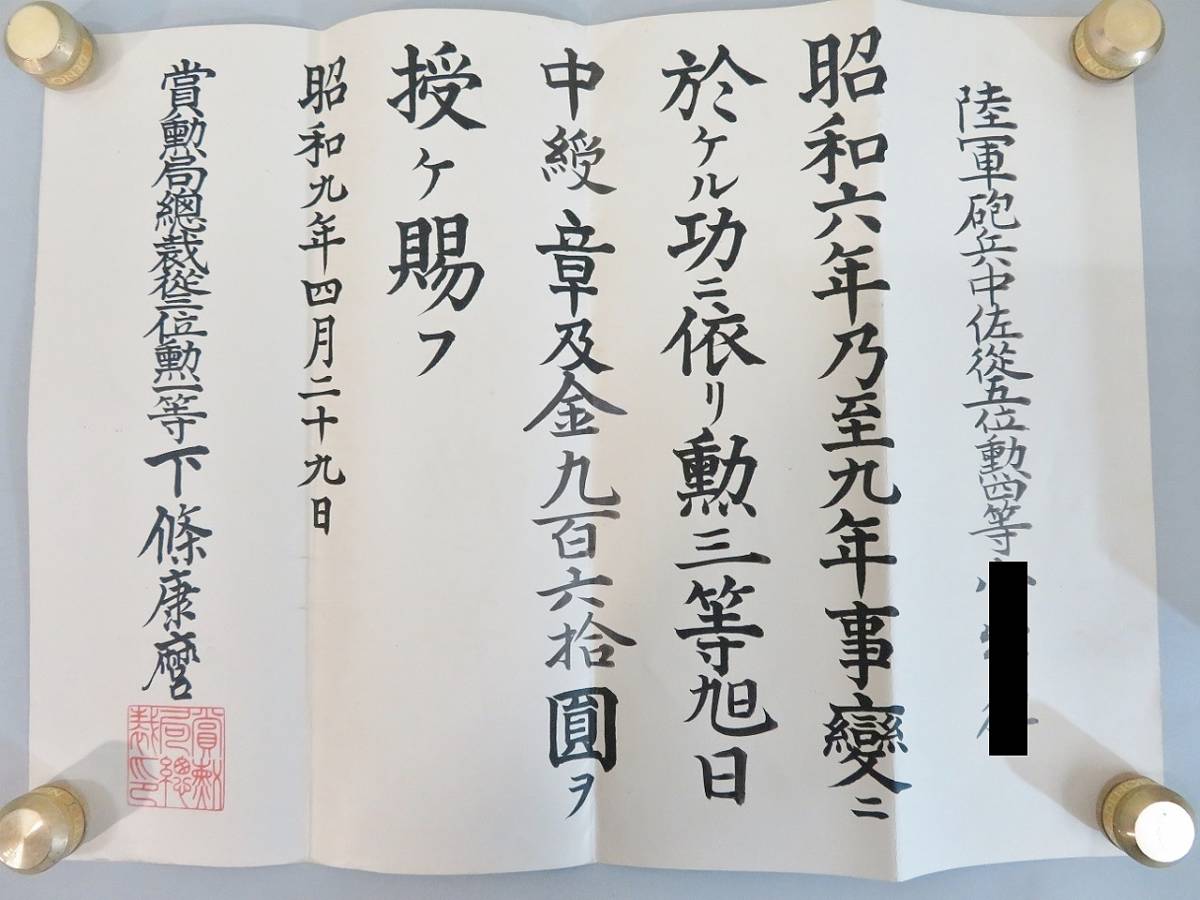 陸軍砲兵中佐從五位勳四等
昭和六年乃至九年事變ニ
於ケル功ニ依リ勳三等旭日
中綬章及金九百六拾圓ヲ
授ケ賜フ
昭和九年四月二十九日
賞勳局總裁從三位勳一等下條康麿
賞勳
局總
裁印